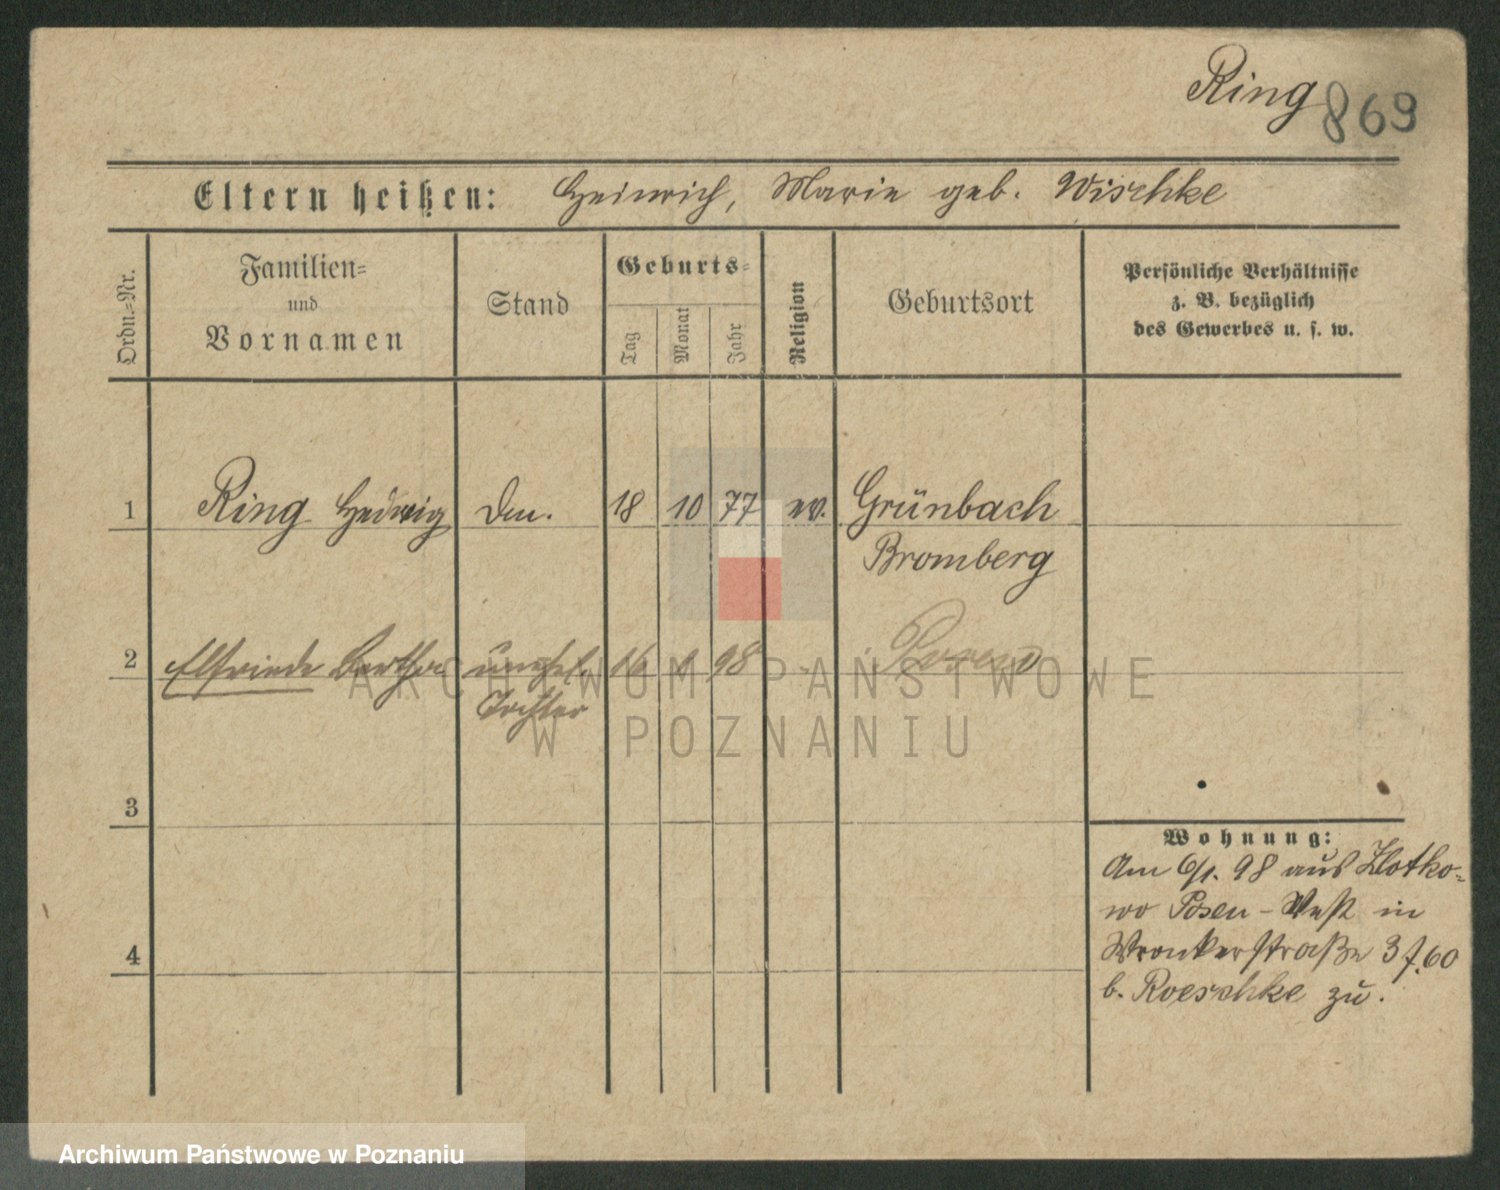 Ring 869
Eltern heißen: Heinrich, Marie geb. Wischke
Ordn.=Nr.
Familien=
und
Vornamen
Stand
Geburts=
Tag
Monat
Jahr
Religion
Geburtsort
Persönliche Verhältnisse
z. B. bezüglich
des Gewerbes u. s. w.
1 Ring Hedwig 18 10 77 ev. Grünbach
Bromberg
2 Elfriede Bertha unehel. 16 1 98 Posen
Tochter
3
4
Wohnung:
Am 6/1. 98 aus Zlotko-
wo Posen-West in
Wronkerstraße
b. Roeschke zu.
ARCHIWUM PAŃSTWOWE
W POZNANIU
Archiwum Państwowe w Poznaniu